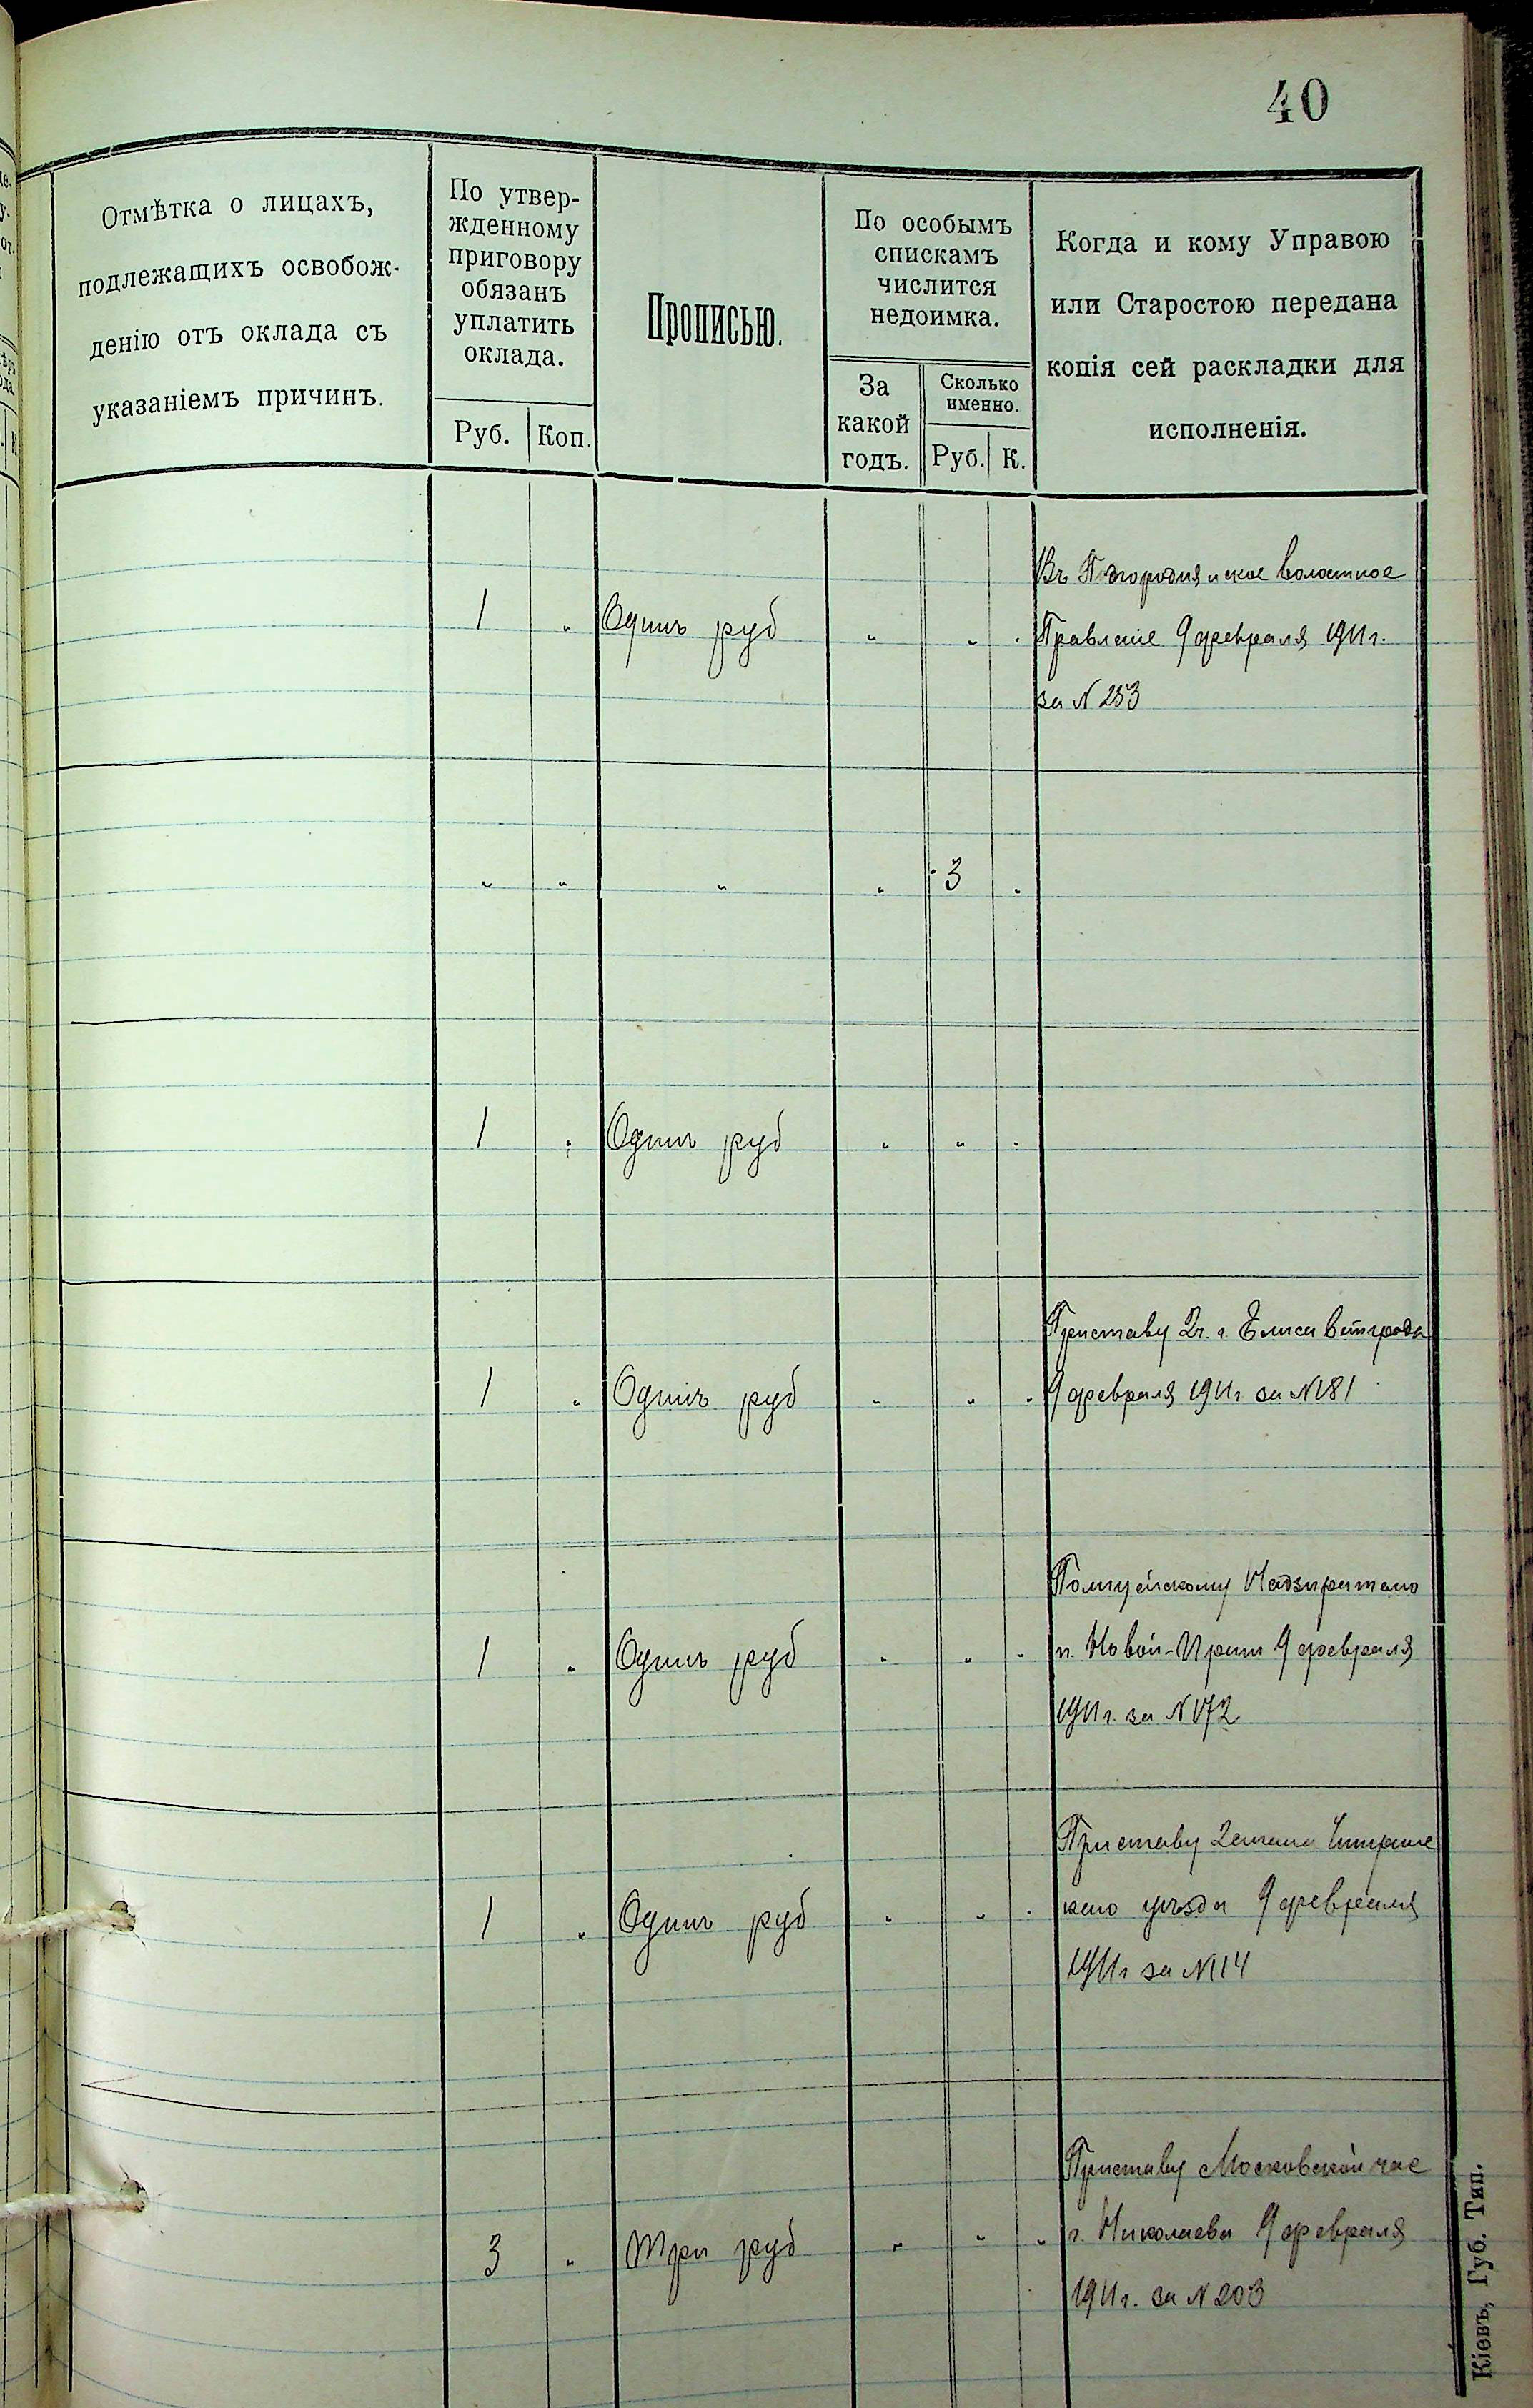 40
Отмѣтка о лицахъ,
подлежащихъ освобож-
денію отъ оклада съ
указаніемъ причинъ.
По утвер-
жденному
приговору
обязанъ
уплатить
оклада.
Руб. Коп.
Прописью.
По особымъ
спискамъ
числится
недоимка.
За
какой
годъ.
Сколько
именно.
Руб. К.
Когда и кому Управою
или Старостою передана
копія сей раскладки для
исполненія.
Въ волостное
1 " Одинъ руб " " " Правленіе 9 февраля 1911 г.
за N 253
" " " " 3 "
1 " Одинъ руб " " "
Приставу 2 ч. г. Елисаветграда
1 " Одинъ руб " " " 9 февраля 1911 г за N 181
Полицейскому Надзирателю
1 " Одинъ руб " " " п. Новой-Праги 9 февраля
1911 г. за N 172
Приставу 2 стана
1 " Одинъ руб " " " уѣзда 9 февраля
1911 г за N 114
Приставу Московской час
3 " Три руб " " " г. Николаева 9 февраля
1911 г. за N 203
Кіевъ, Губ. Тип.